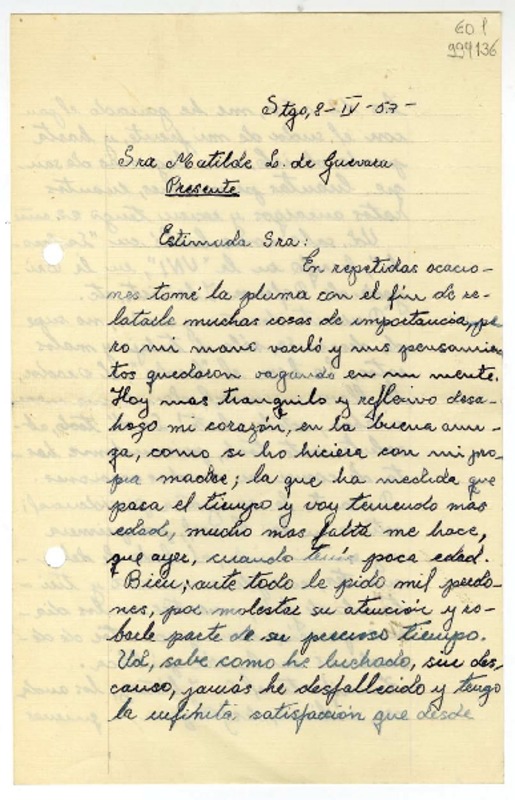 60 P
994136
Stgo, 8- IV -53-
Sra Matilde L. de Guevara
Presente
Estimada Sra:
En repetidas ocacio-
nes tomé la pluma con el fin de re-
latarle muchas cosas de importancia, pe
ro mi mano vaciló y mis pensamien
tos quedaron vagando en mi mente.
Hoy mas tranquilo y reflexivo desa-
hogo mi corazón, en la buena ami-
ga, como si lo hiciera con mi pro-
pia madre; la que ha medida que
pasa el tiempo y voy teniendo más
edad, mucho mas falta me hace,
que ayer, cuando tenía poca edad.
Bien; ante todo le pido mil perdo-
nes, por molestar su atención y ro-
barle parte de su precioso tiempo.
Ud, sabe como he luchado, sin des-
canso, jamás he desfallecido y tengo
la infinita satisfacción que desde